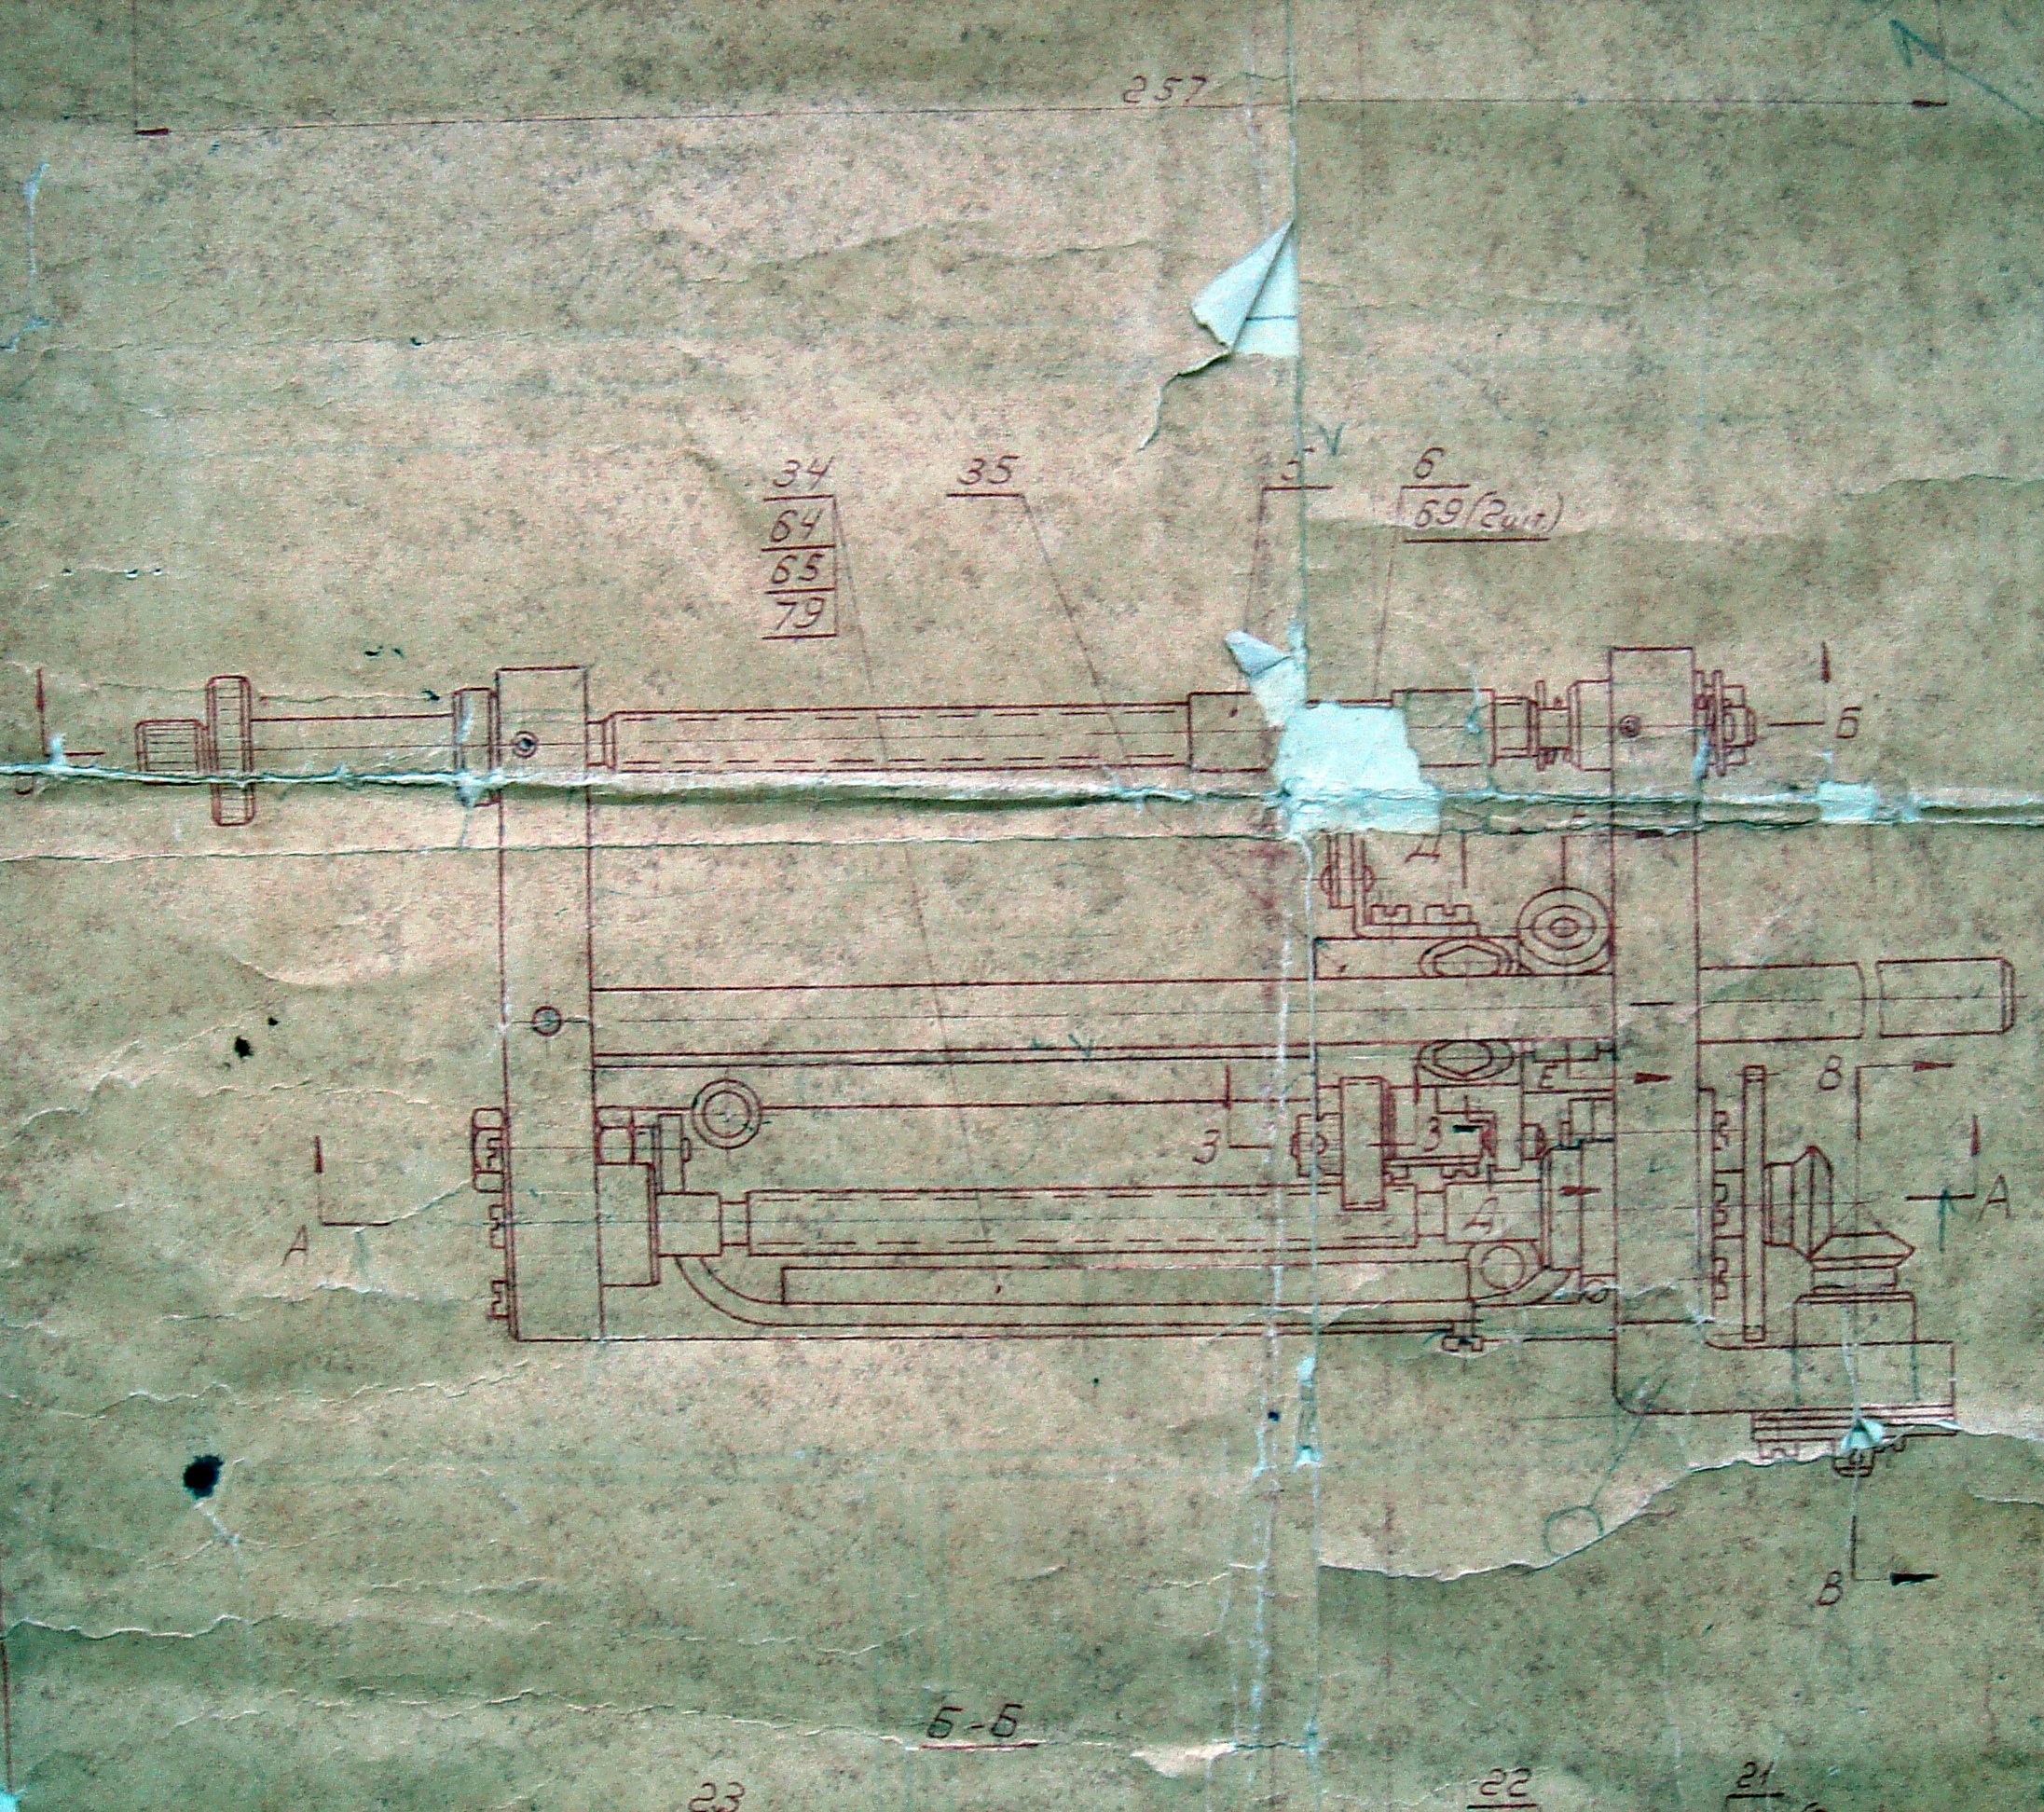 257
34
64
65
79
35
5
6
69(2шт.)
Б
Д
Е
В
З
З
А
Д
А
В
Б-Б
23
22
21